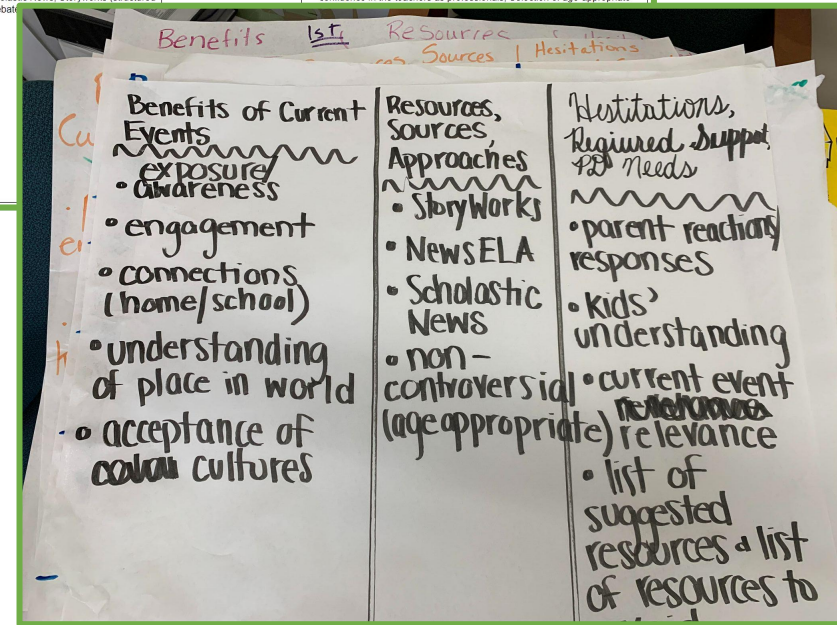 Benefits 1st, Resources
Sources | Hesitations
Benefits of Current
Events
exposure/
• awareness
• engagement
• connections
(home/school)
• understanding
of place in world
• acceptance of
cultures
Resources,
Sources,
Approaches
• StoryWorks
• NewsELA
• Scholastic
News
• non-
controversial
(age appropriate)
Hestitations,
Regiured Suppot,
PD Needs
• parent reactions/
responses
• kids'
understanding
• current event
relevance
• list of
suggested
resources & list
of resources to